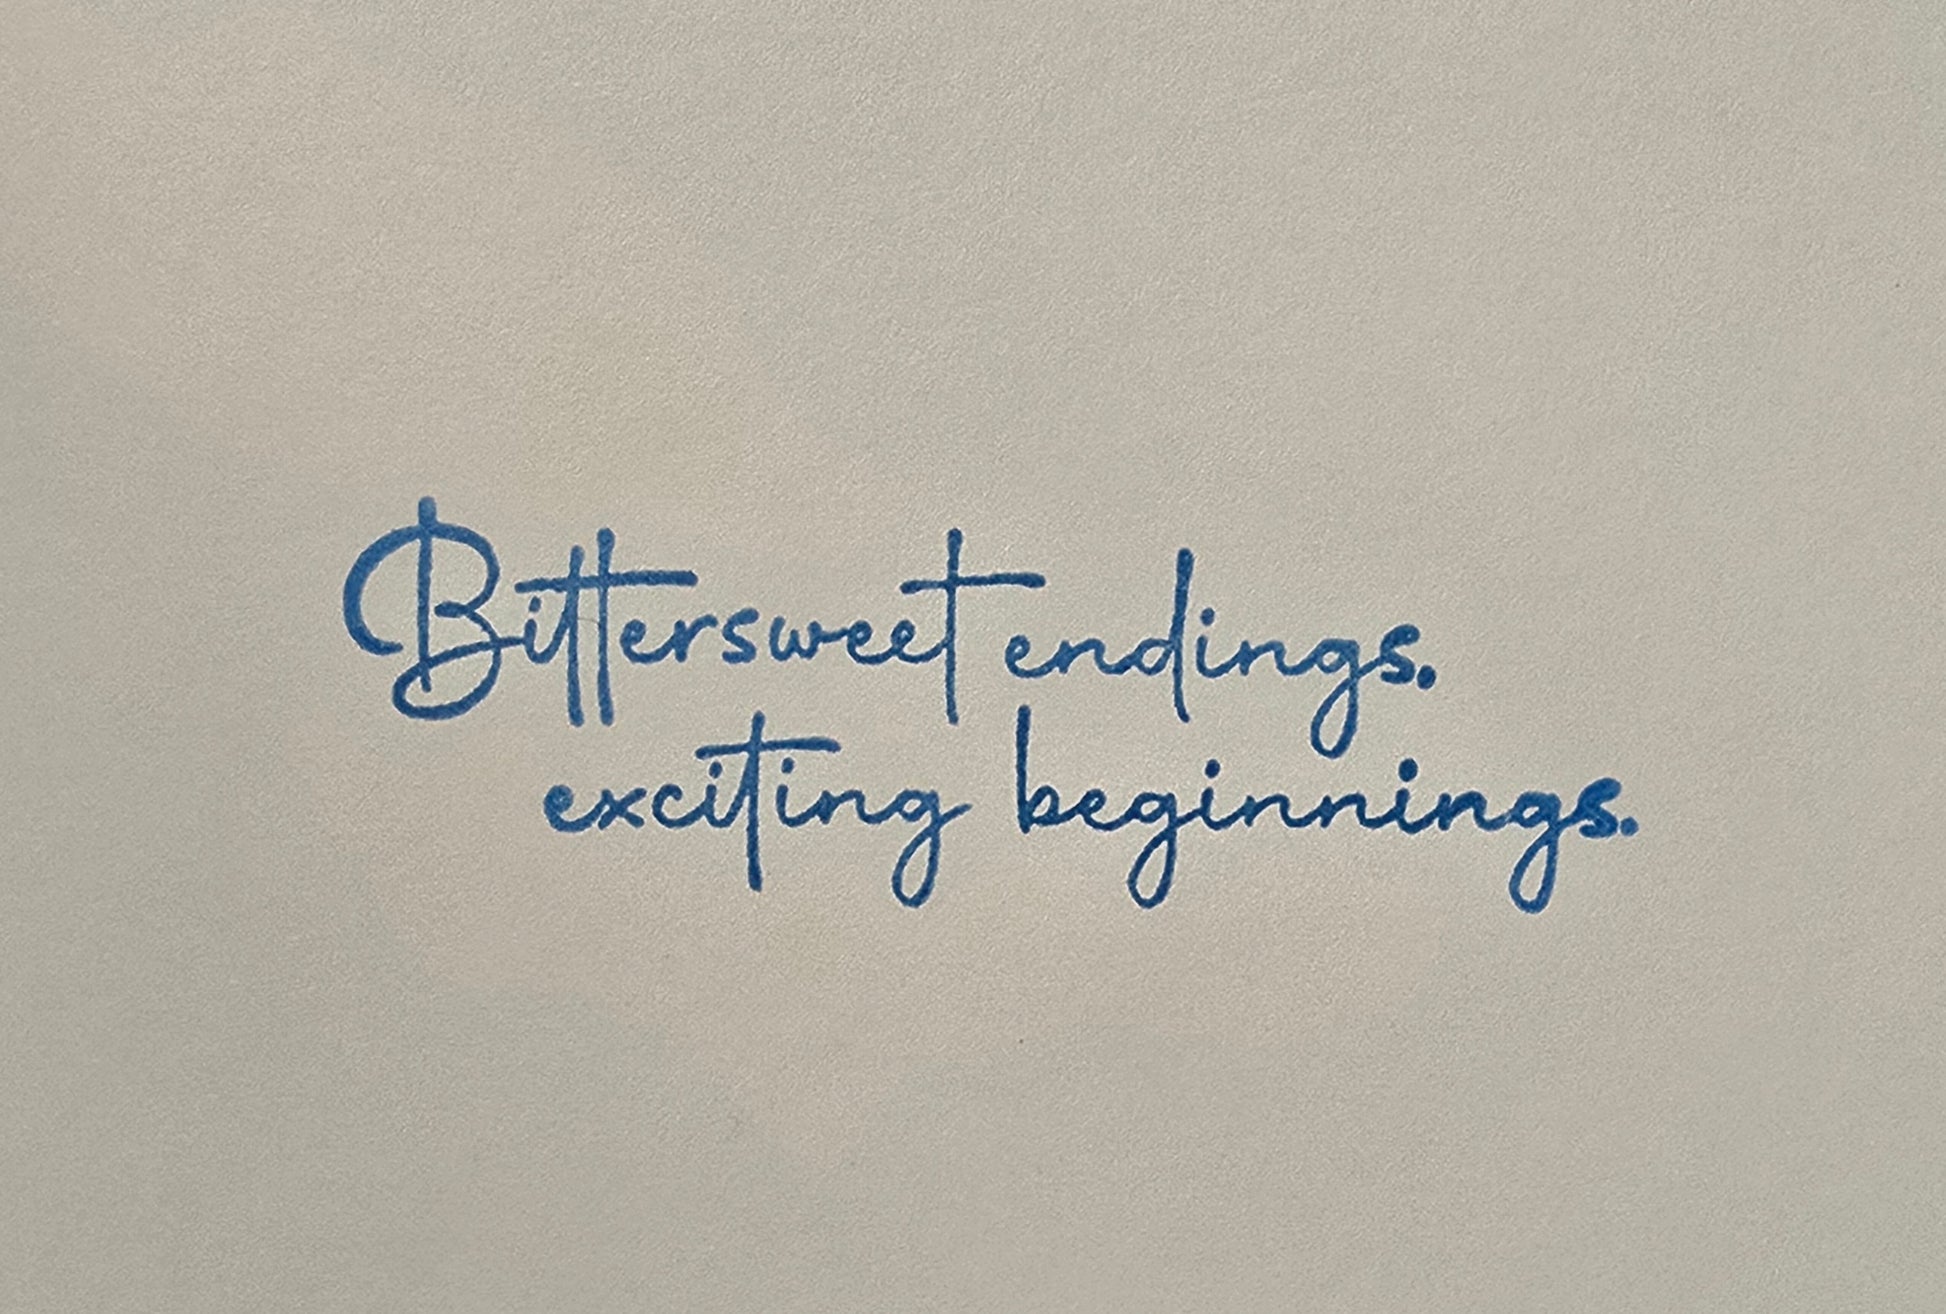 Bittersweet endings.
exciting beginnings.